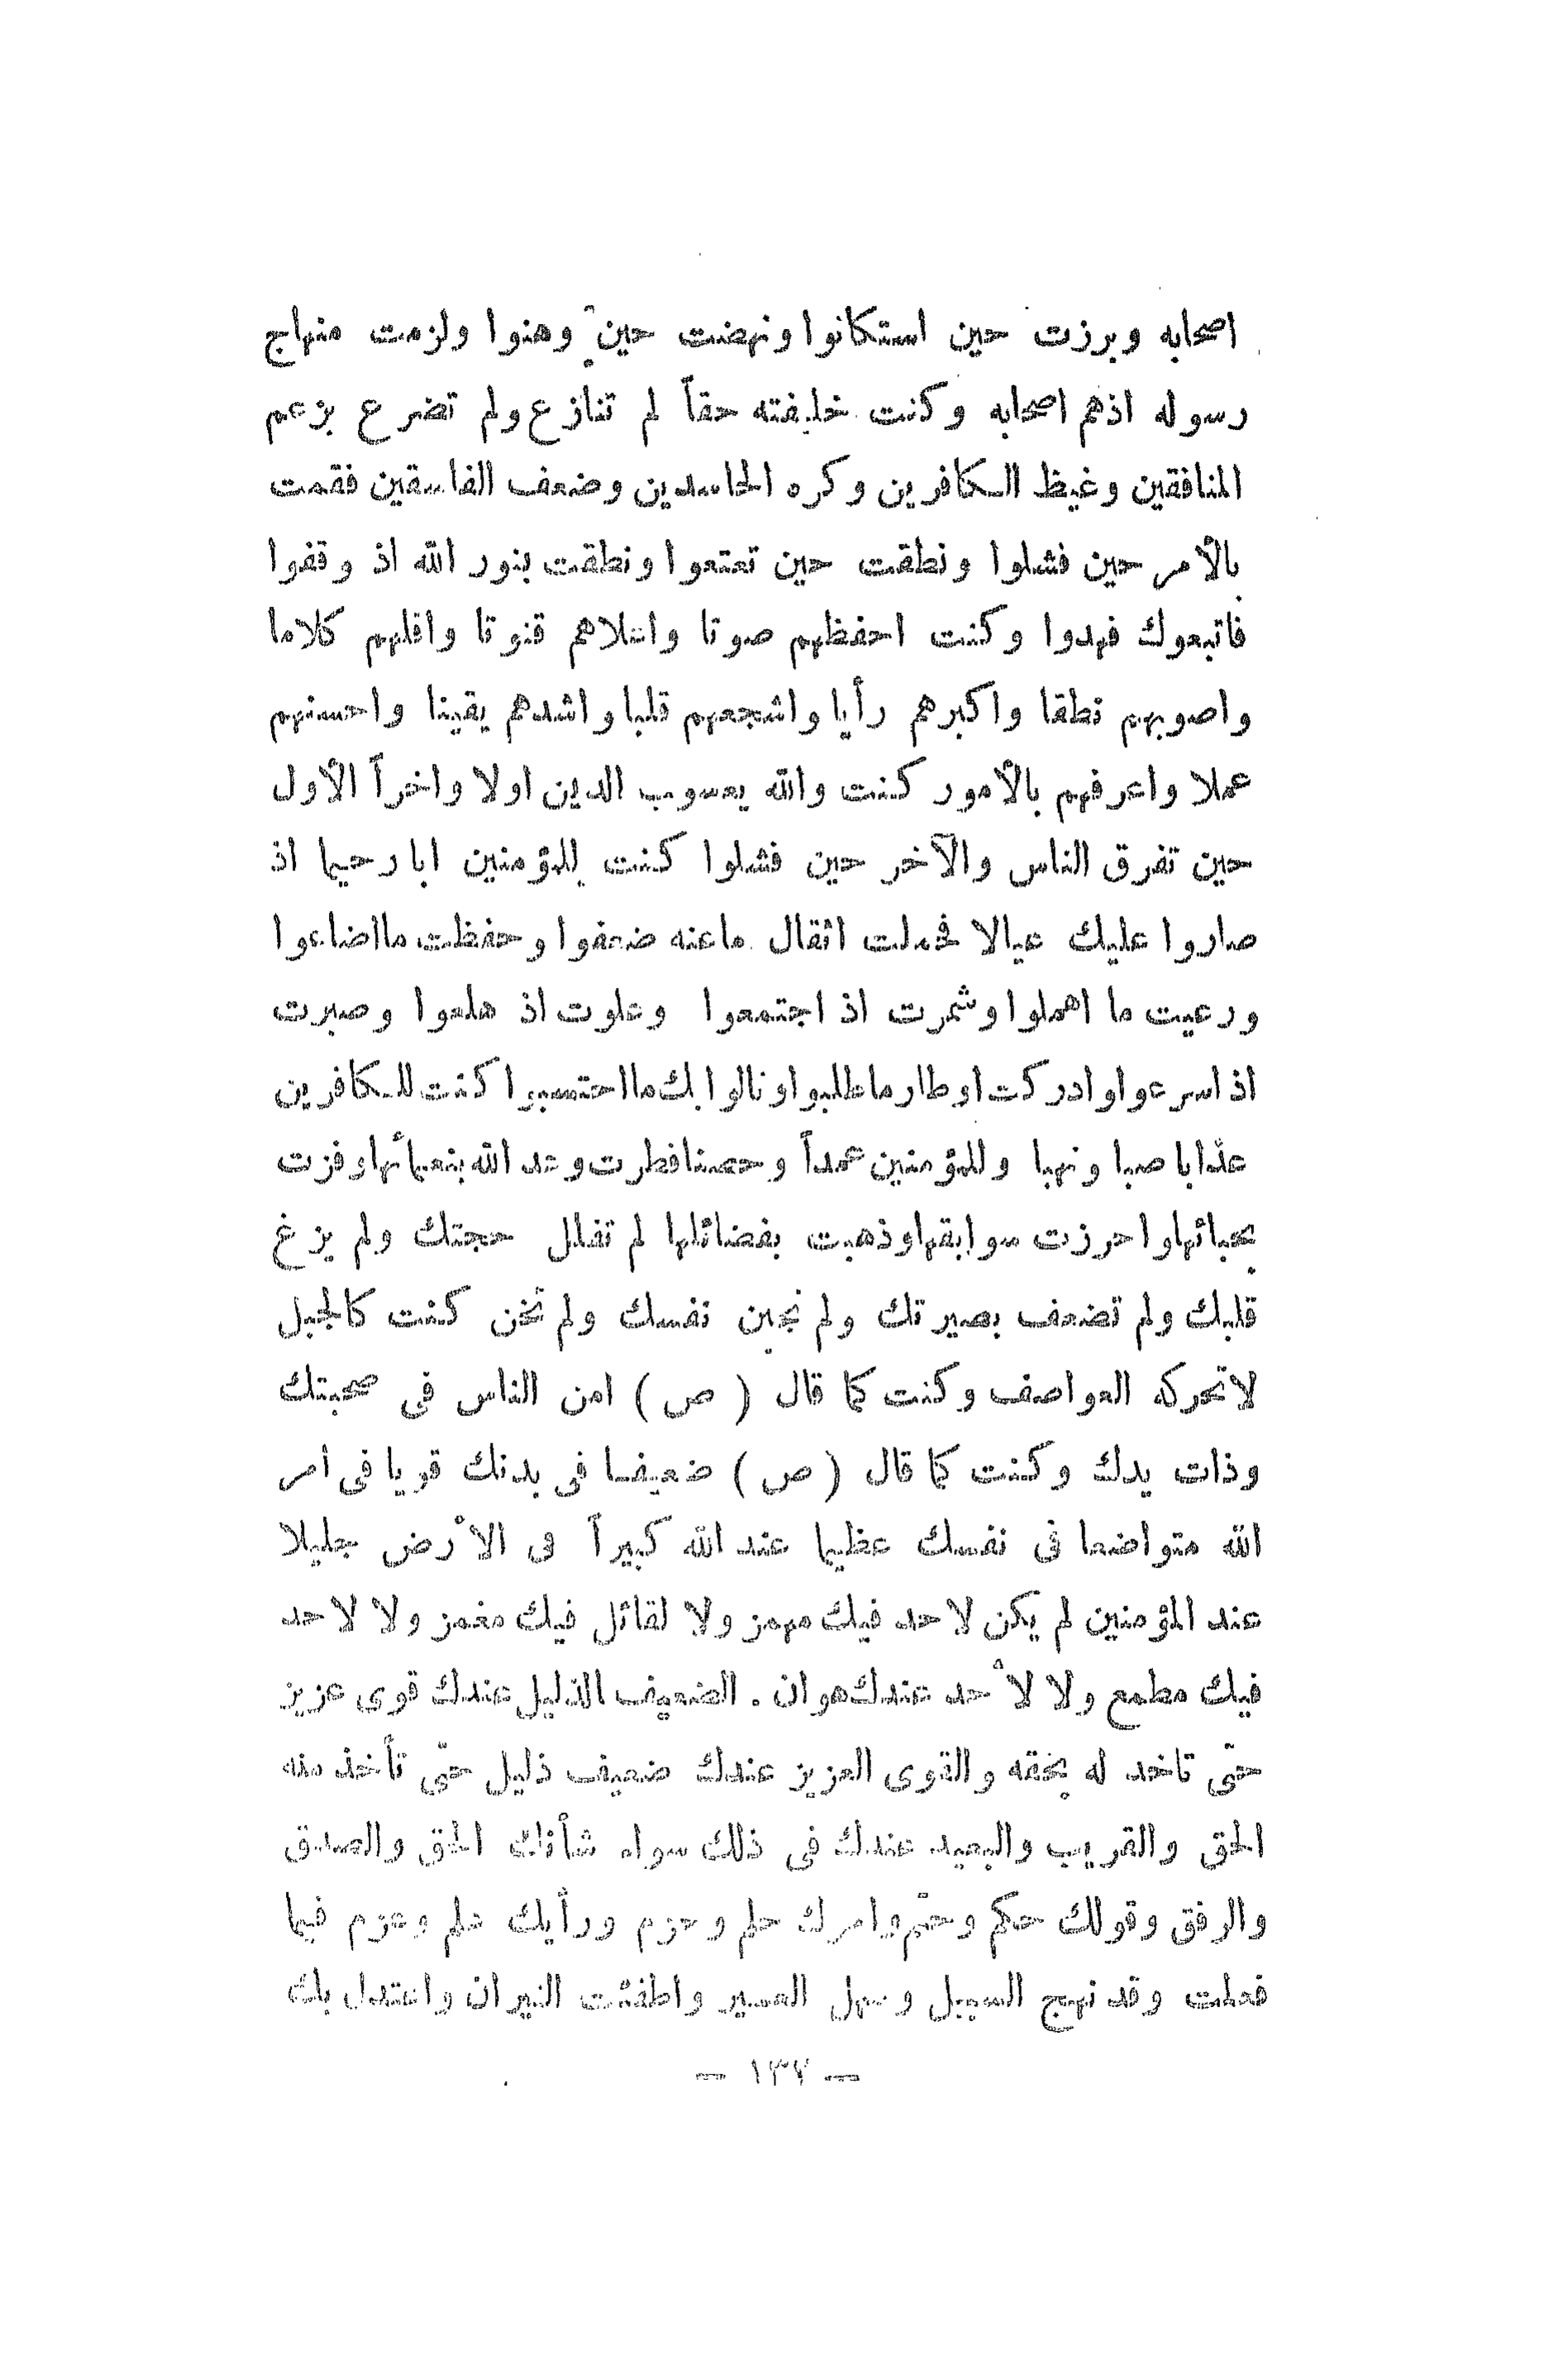 اصحابه وبرزت حين استكانوا ونهضت حين وهنوا ولزمت منهاج
رسوله اذهم اصحابه وكنت خليفته حقاً لم تنازع ولم تضرع بزعم
المنافقين وغيظ الكافرين وكره الحاسدين وضعف الفاسقين فقمت
بالأمر حين فشلوا ونطقت حين تعتعوا ونطقت بنور الله اذ وقفوا
فاتبعوك فهدوا وكنت احفظهم صوتا واعلاهم قنوتا واقلهم كلاما
واصوبهم نطقا واكبرهم رأيا واشجعهم قلبا واشدهم يقينا واحسنهم
عملا واعرفهم بالأمور كنت والله يعسوب الدين اولا واخراً الأول
حين تفرق الناس والآخر حين فشلوا كنت للمؤمنين ابا رحيما اذ
صاروا عليك عيالا فحملت اثقال ماعنه ضعفوا وحفظت مااضاعوا
ورعيت ما اهملوا وشمرت اذ اجتمعوا وعلوت اذ هلعوا وصبرت
اذ اسرعوا وادركت اوطار ماطلبوا ونالوا بك مااحتسبوا كنت للكافرين
عذابا صبا ونهبا وللمؤمنين عمداً وحصنا فطرت وعد الله بنعمائها وفزت
بحبائها واحرزت سوابقها وذهبت بفضائلها لم تفلل حجتك ولم يزغ
قلبك ولم تضعف بصيرتك ولم تجبن نفسك ولم تخن كنت كالجبل
لاتحركه العواصف وكنت كما قال ( ص ) امن الناس فى صحبتك
وذات يدك وكنت كما قال ( ص ) ضعيفا فى بدنك قويا فى امر
الله متواضعا فى نفسك عظيما عند الله كبيراً فى الأرض جليلا
عند المؤمنين لم يكن لاحد فيك مهمز ولا لقائل فيك مغمز ولا لاحد
فيك مطمع ولا لأحد عندك هوان . الضعيف الذليل عندك قوى عزيز
حتى تاخد له بحقه والقوى العزيز عندك ضعيف ذليل حتى تأخذ منه
الحق والقريب والبعيد عندك فى ذلك سواء شأنك الحق والصدق
والرفق وقولك حكم وحتم وامرك حلم وحزم ورأيك علم وعزم فيما
فعلت وقد نهج السبيل وسهل العسير واطفئت النيران واعتدل بك
— ١٣٧ —